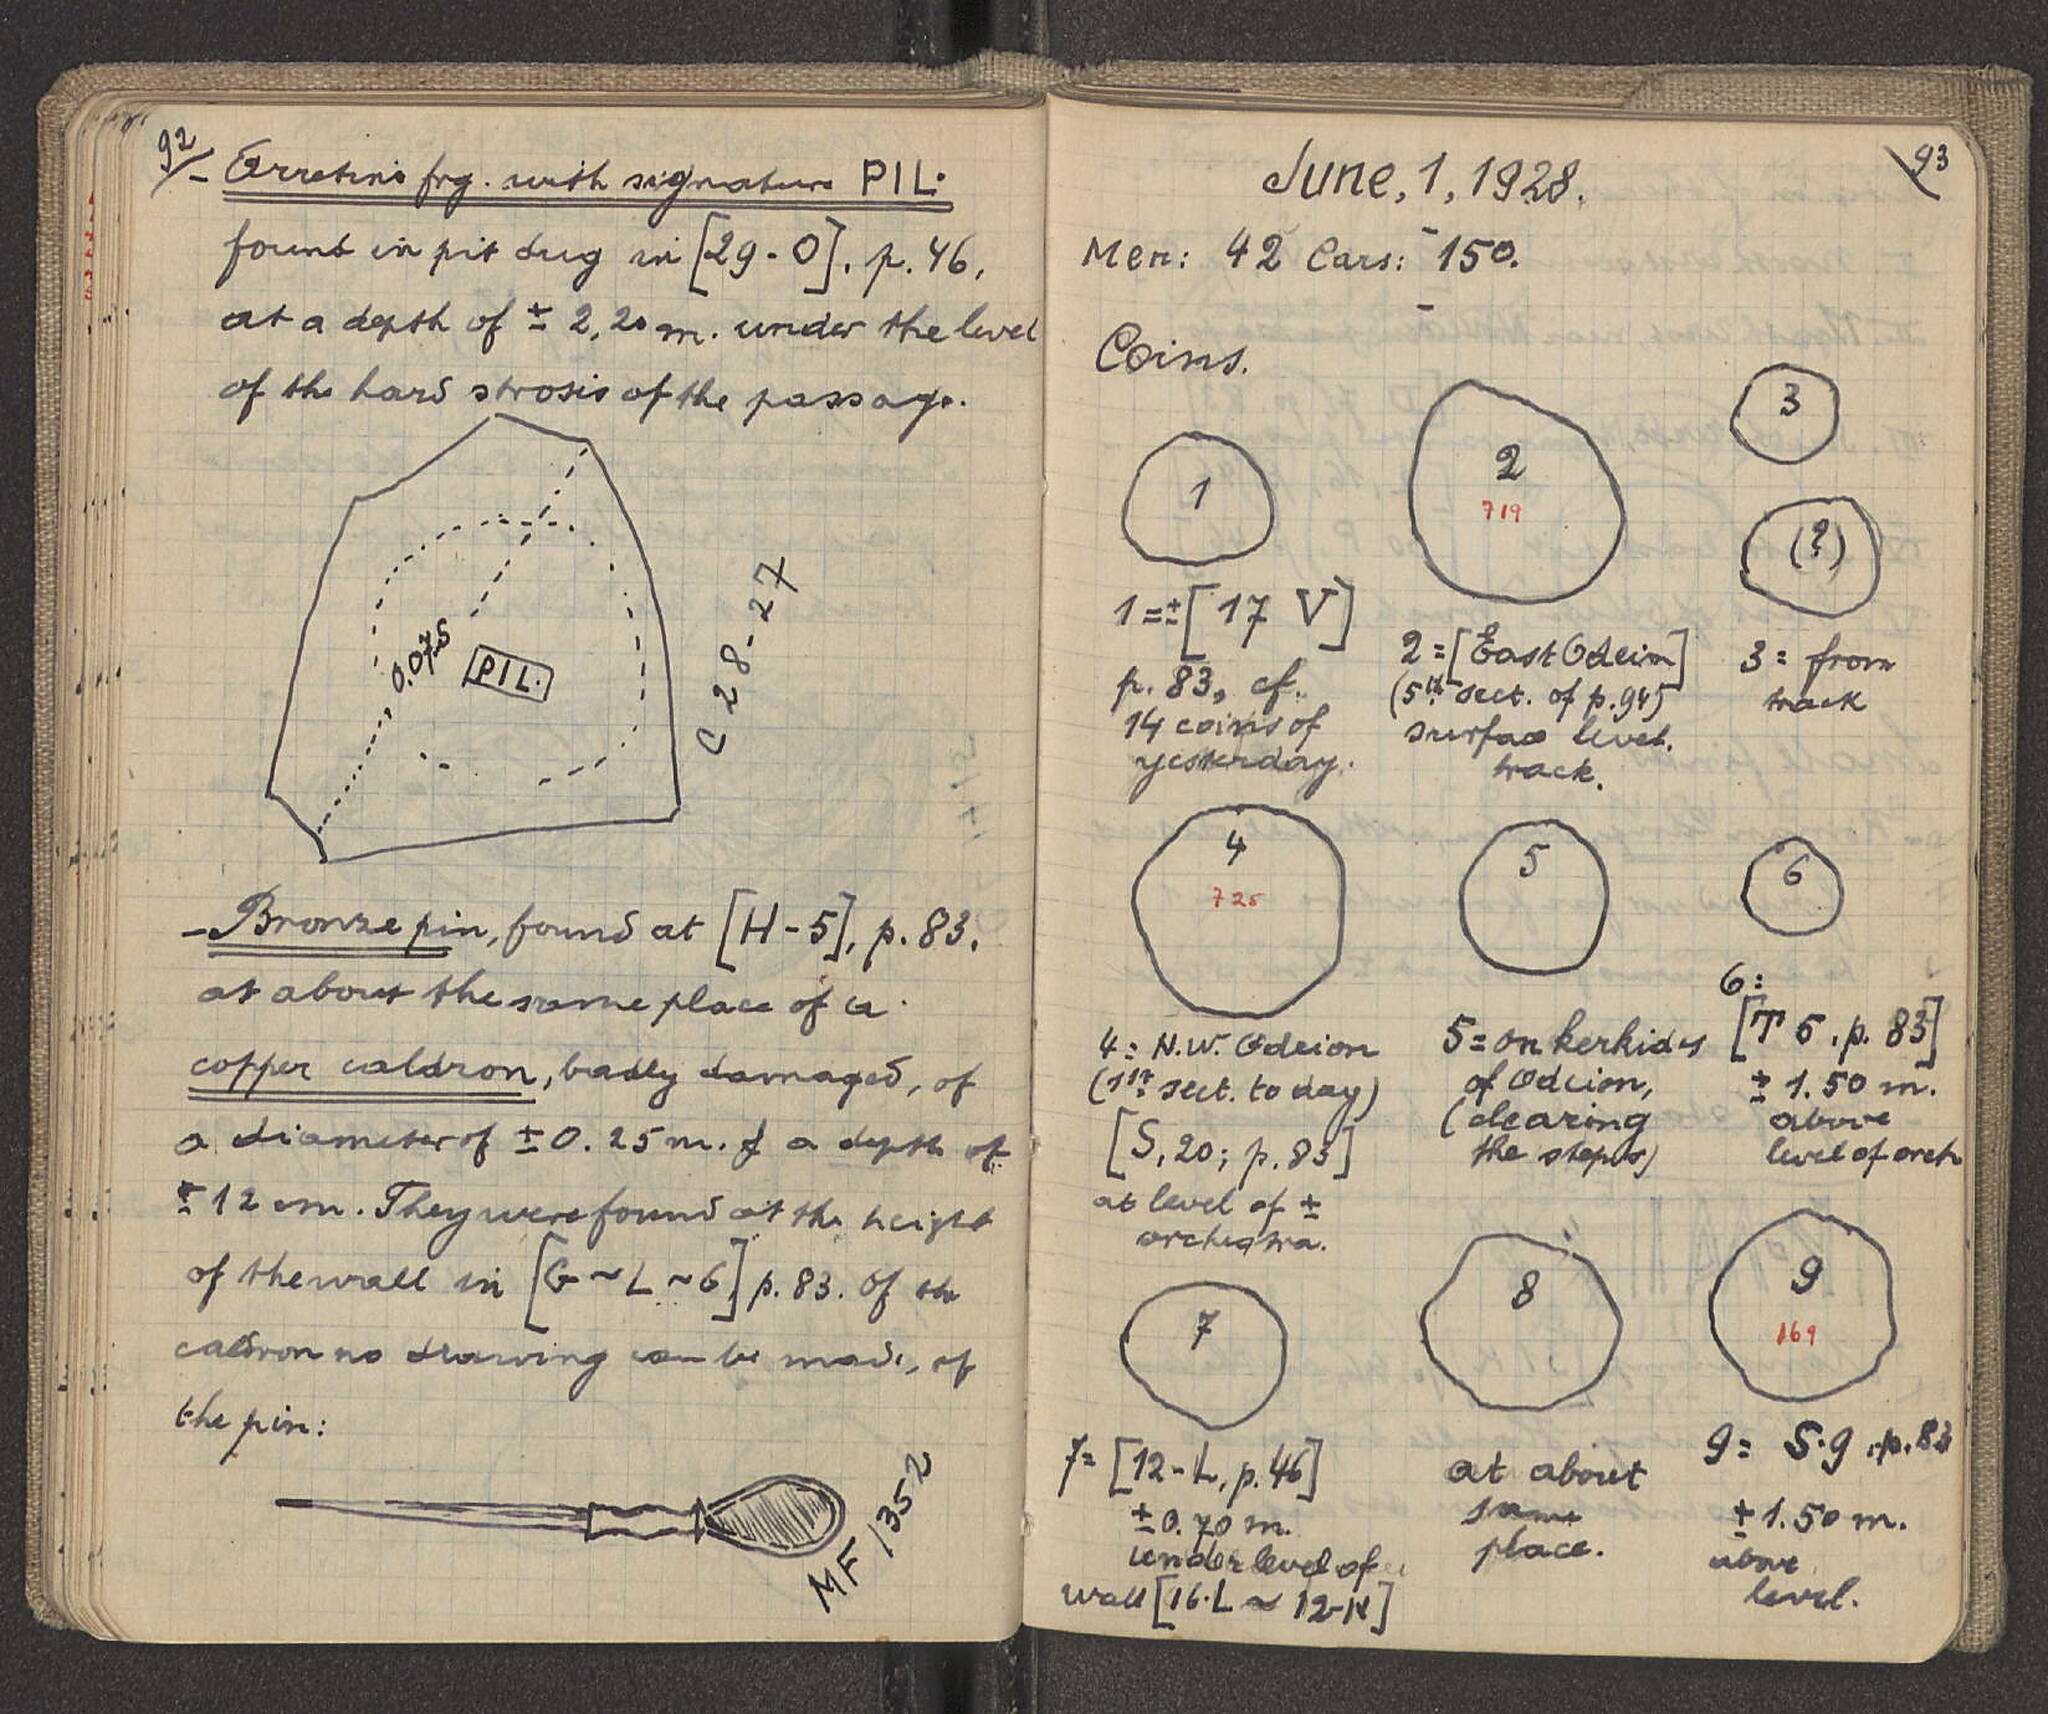 92
- Arretine frg. with signature PIL.
found in pit dug in [29-O], p. 46,
at a depth of ± 2,20 m. under the level
of the hard strosis of the passage.
0.075
PIL.
C 28-27
- Bronze pin, found at [H-5], p. 83.
at about the same place of a
copper caldron, badly damaged, of
a diameter of ± 0.25 m. & a depth of
± 12 cm. They were found at the height
of the wall in [G ~ L ~ 6] p. 83. Of the
caldron no drawing can be made, of
the pin:
MF 1352
93
June, 1, 1928.
Men: 42 Cars: 150.
Coins.
1
2
719
3
(?)
1 = ± [17 V]
p. 83, cf.
14 coins of
yesterday.
2 = [East Odeion]
(5th sect. of p. 94)
surface level.
track.
3 = from
track
4
725
5
6
4 = N.W. Odeion
(1st sect. to day)
[S, 20; p. 83]
at level of ±
orchestra.
5 = on kerkides
of Odeion,
(clearing
the steps)
6 =
[T 5, p. 83]
± 1.50 m.
above
level of orch
7
8
9
169
7 = [12-L, p. 46]
± 0.70 m.
under level of
wall [16.L ~ 12-N]
at about
same
place.
9 = S.9, p. 83
± 1.50 m.
above
level.